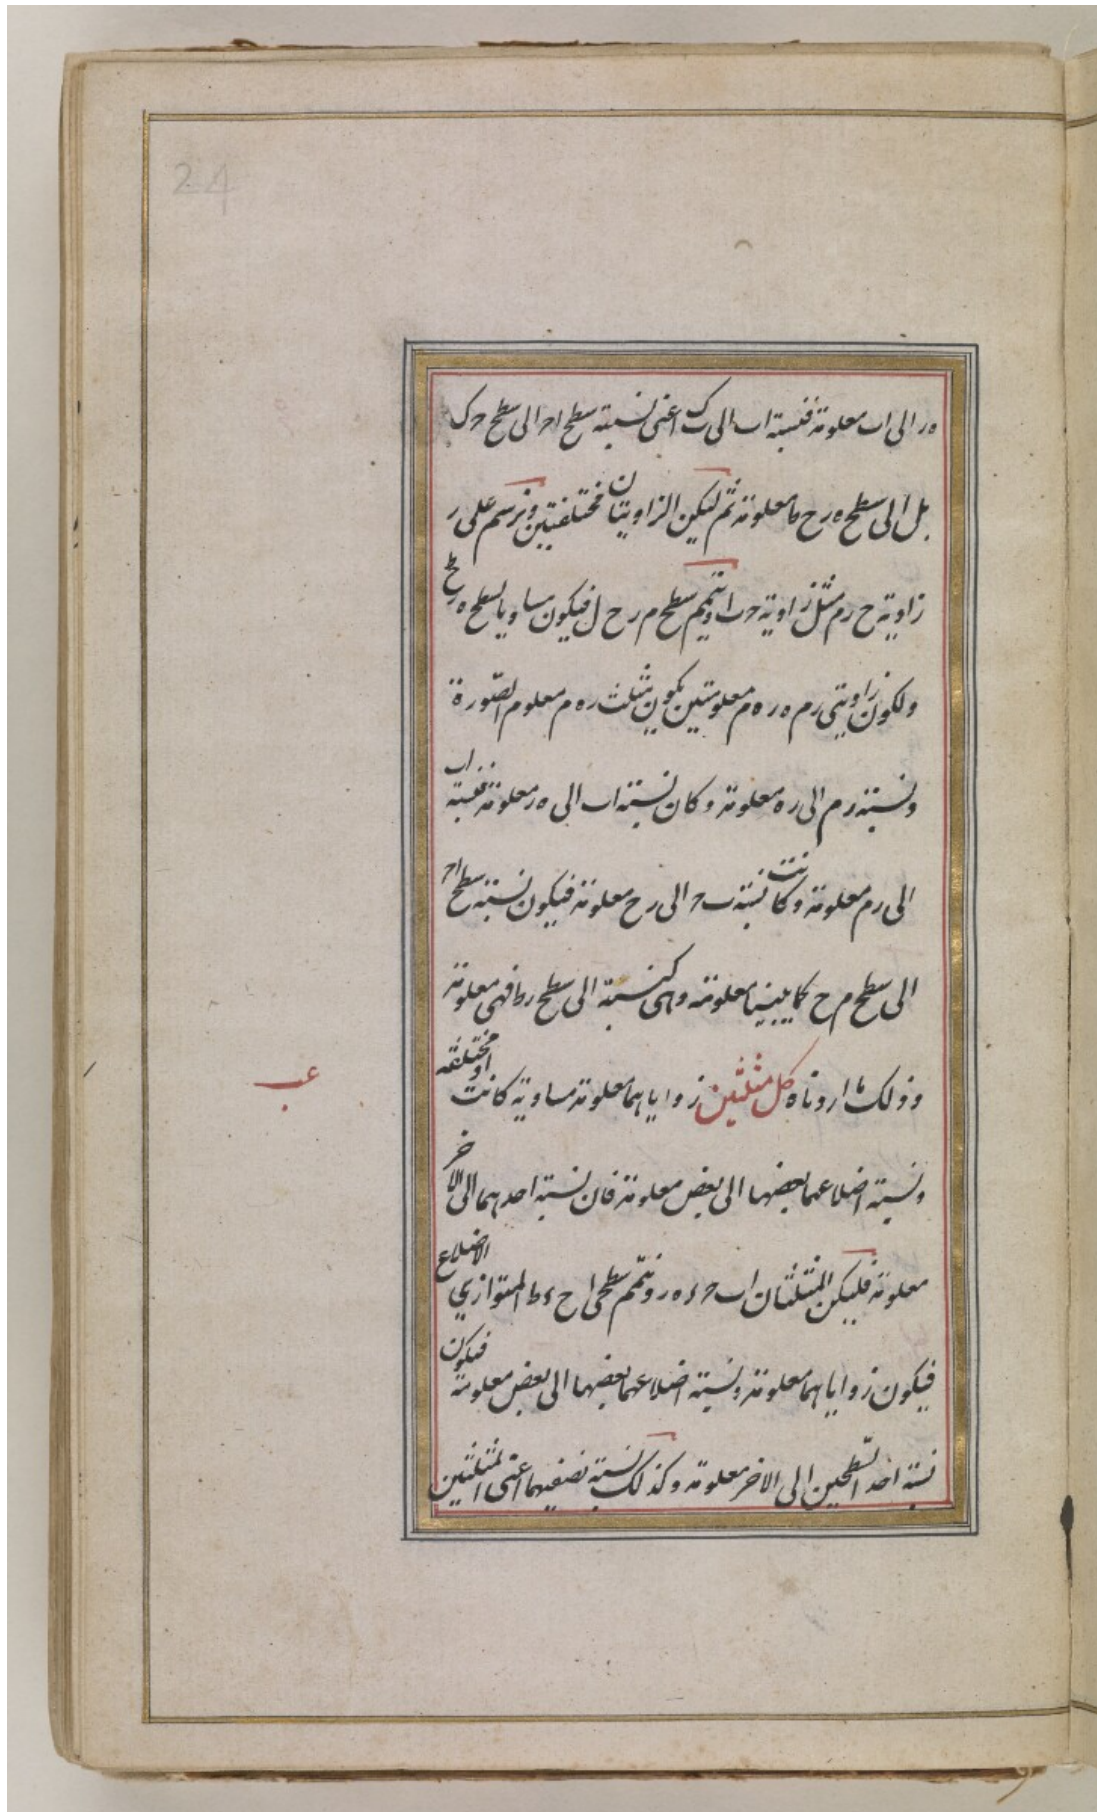 24
ه ر الى ا ب معلومة فنسبة ا ب الى ب ك اعنى نسبة سطح ا حـ الى سطح حـ ك
بل الى سطح ه ر ح ط معلومة ثم ليكن الزاويتان مختلفتين ونرسم على ر
زاوية ح ر م مثل زاوية حـ ب ا ونتمم سطح م ر ح ل فيكون مساويا لسطح ه ر ح
ولكون زاويتى ر م ه ر ه م معلومتين يكون مثلث ر ه م معلوم الصورة
ونسبة ر م الى ر ه معلومة وكان نسبة ا ب الى ه ر معلومة فنسبة ا ب
الى ر م معلومة وكانت نسبة ب حـ الى ر ح معلومة فيكون نسبة سطح ا حـ
الى سطح م ح كما يبينا معلومة وهى كنسبة الى سطح ر ط فهى معلومة
وذلك ما اردناه كل مثلثين زواياهما معلومة مساوية كانت او مختلفة
عب
ونسبة اضلاعهما بعضها الى بعض معلومة فان نسبة احدهما الى الاخر
معلومة فليكن المثلثان ا ب حـ ء ه ر ونتمم سطحى ا ح ء ط المتوازيي الاضلاع
فيكون زواياهما معلومة ونسبة اضلاعهما بعضها الى بعض معلومة فيكون
نسبة احد السطحين الى الاخر معلومة وكذلك نسبة نصفيهما اعنى المثلثين